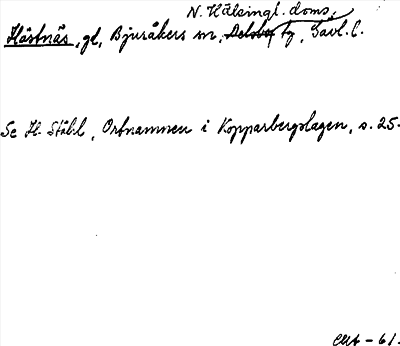 N. Hälsingl. doms.
Hästnäs, gd, Bjuråkers sn, Delsbo tg, Gävl. l.
Se H. Ståhl, Ortnamnen i Kopparbergslagen, s. 25.
- 61.